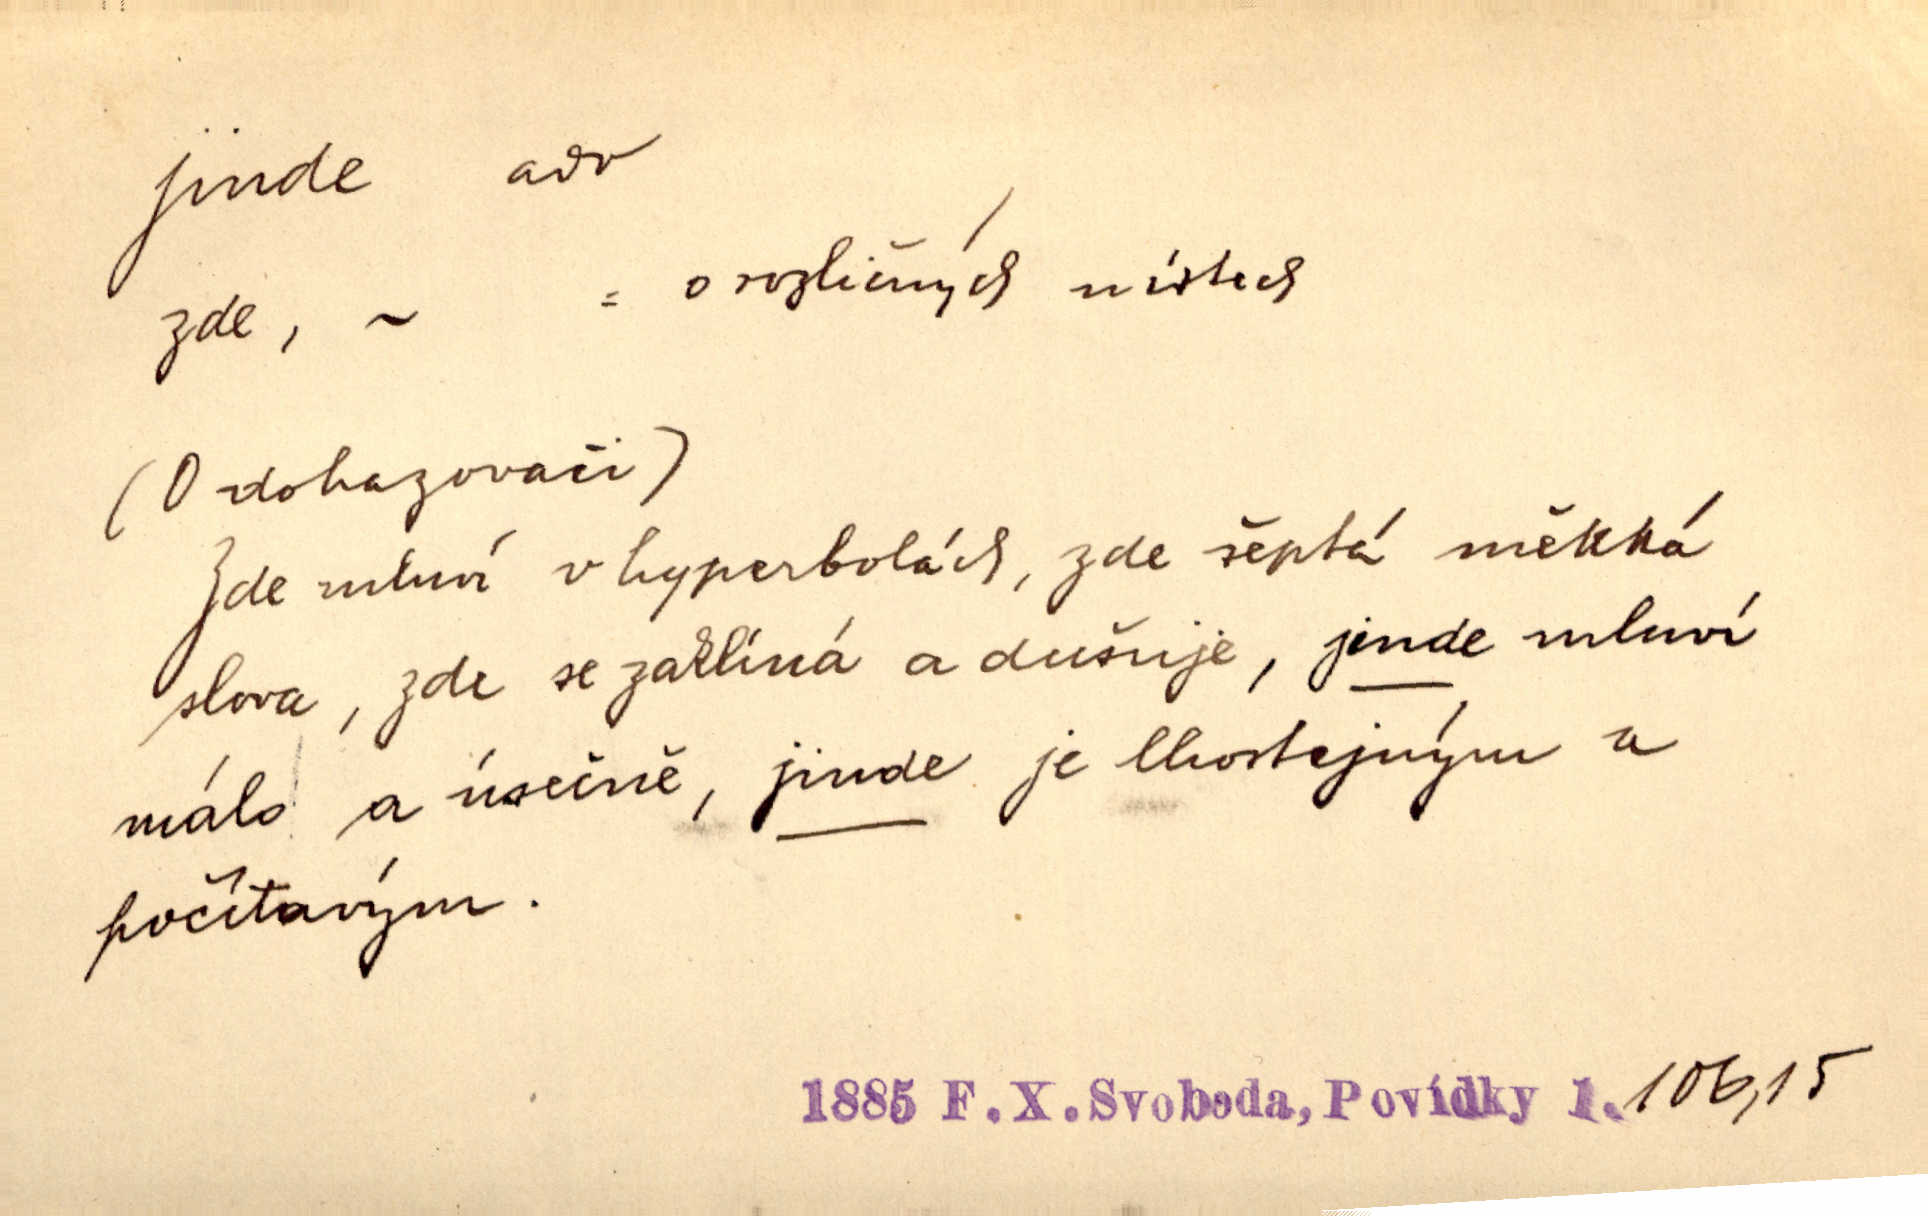 jinde adv
zde, ~ = o rozličných místech
(O dohazovači)
Zde mluví v hyperbolách, zde šeptá měkká
slova, zde se zaklíná a dušuje, jinde mluví
málo a úsečně, jinde je lhostejným a
počítavým.
1885 F. X. Svoboda, Povídky 1. 106,15